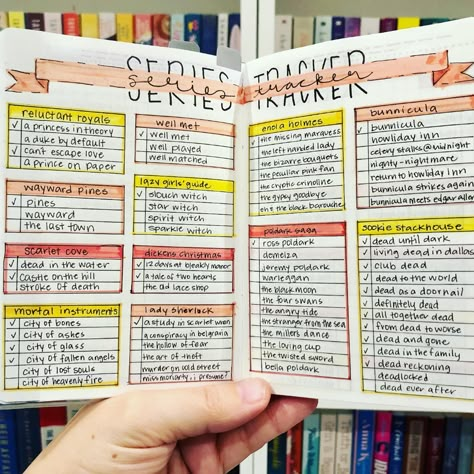 SERIES TRACKER
series tracker
reluctant royals
✓ a princess in theory
a duke by default
can't escape love
a prince on paper
wayward pines
✓ pines
wayward
the last town
scarlet cove
✓ dead in the water
✓ castle on the hill
stroke of death
mortal instruments
✓ city of bones
✓ city of ashes
✓ city of glass
✓ city of fallen angels
city of lost souls
city of heavenly fire
well met
✓ well met
well played
well matched
lazy girls' guide
✓ slouch witch
star witch
spirit witch
sparkle witch
dickens christmas
✓ 12 days at bleakly manor
✓ a tale of two hearts
the old lace shop
lady sherlock
✓ a study in scarlet women
a conspiracy in belgravia
the hollow of fear
the art of theft
murder on cold street
miss moriarty, i presume?
enola holmes
✓ the missing marquess
the left handed lady
the bizarre bouquets
the peculiar pink fan
the cryptic crinoline
the gypsy goodbye
en & the black barouche
poldark saga
✓ ross poldark
demelza
jeremy poldark
warleggan
the black moon
the four swans
the angry tide
the stranger from the sea
the miller's dance
the loving cup
the twisted sword
bella poldark
bunnicula
✓ bunnicula
howliday inn
celery stalks @ midnight
nighty-nightmare
return to howliday inn
bunnicula strikes again
bunnicula meets edgar allen
sookie stackhouse
✓ dead until dark
✓ living dead in dallas
✓ club dead
✓ dead to the world
✓ dead as a doornail
✓ definitely dead
✓ all together dead
✓ from dead to worse
✓ dead and gone
✓ dead in the family
✓ dead reckoning
deadlocked
dead ever after